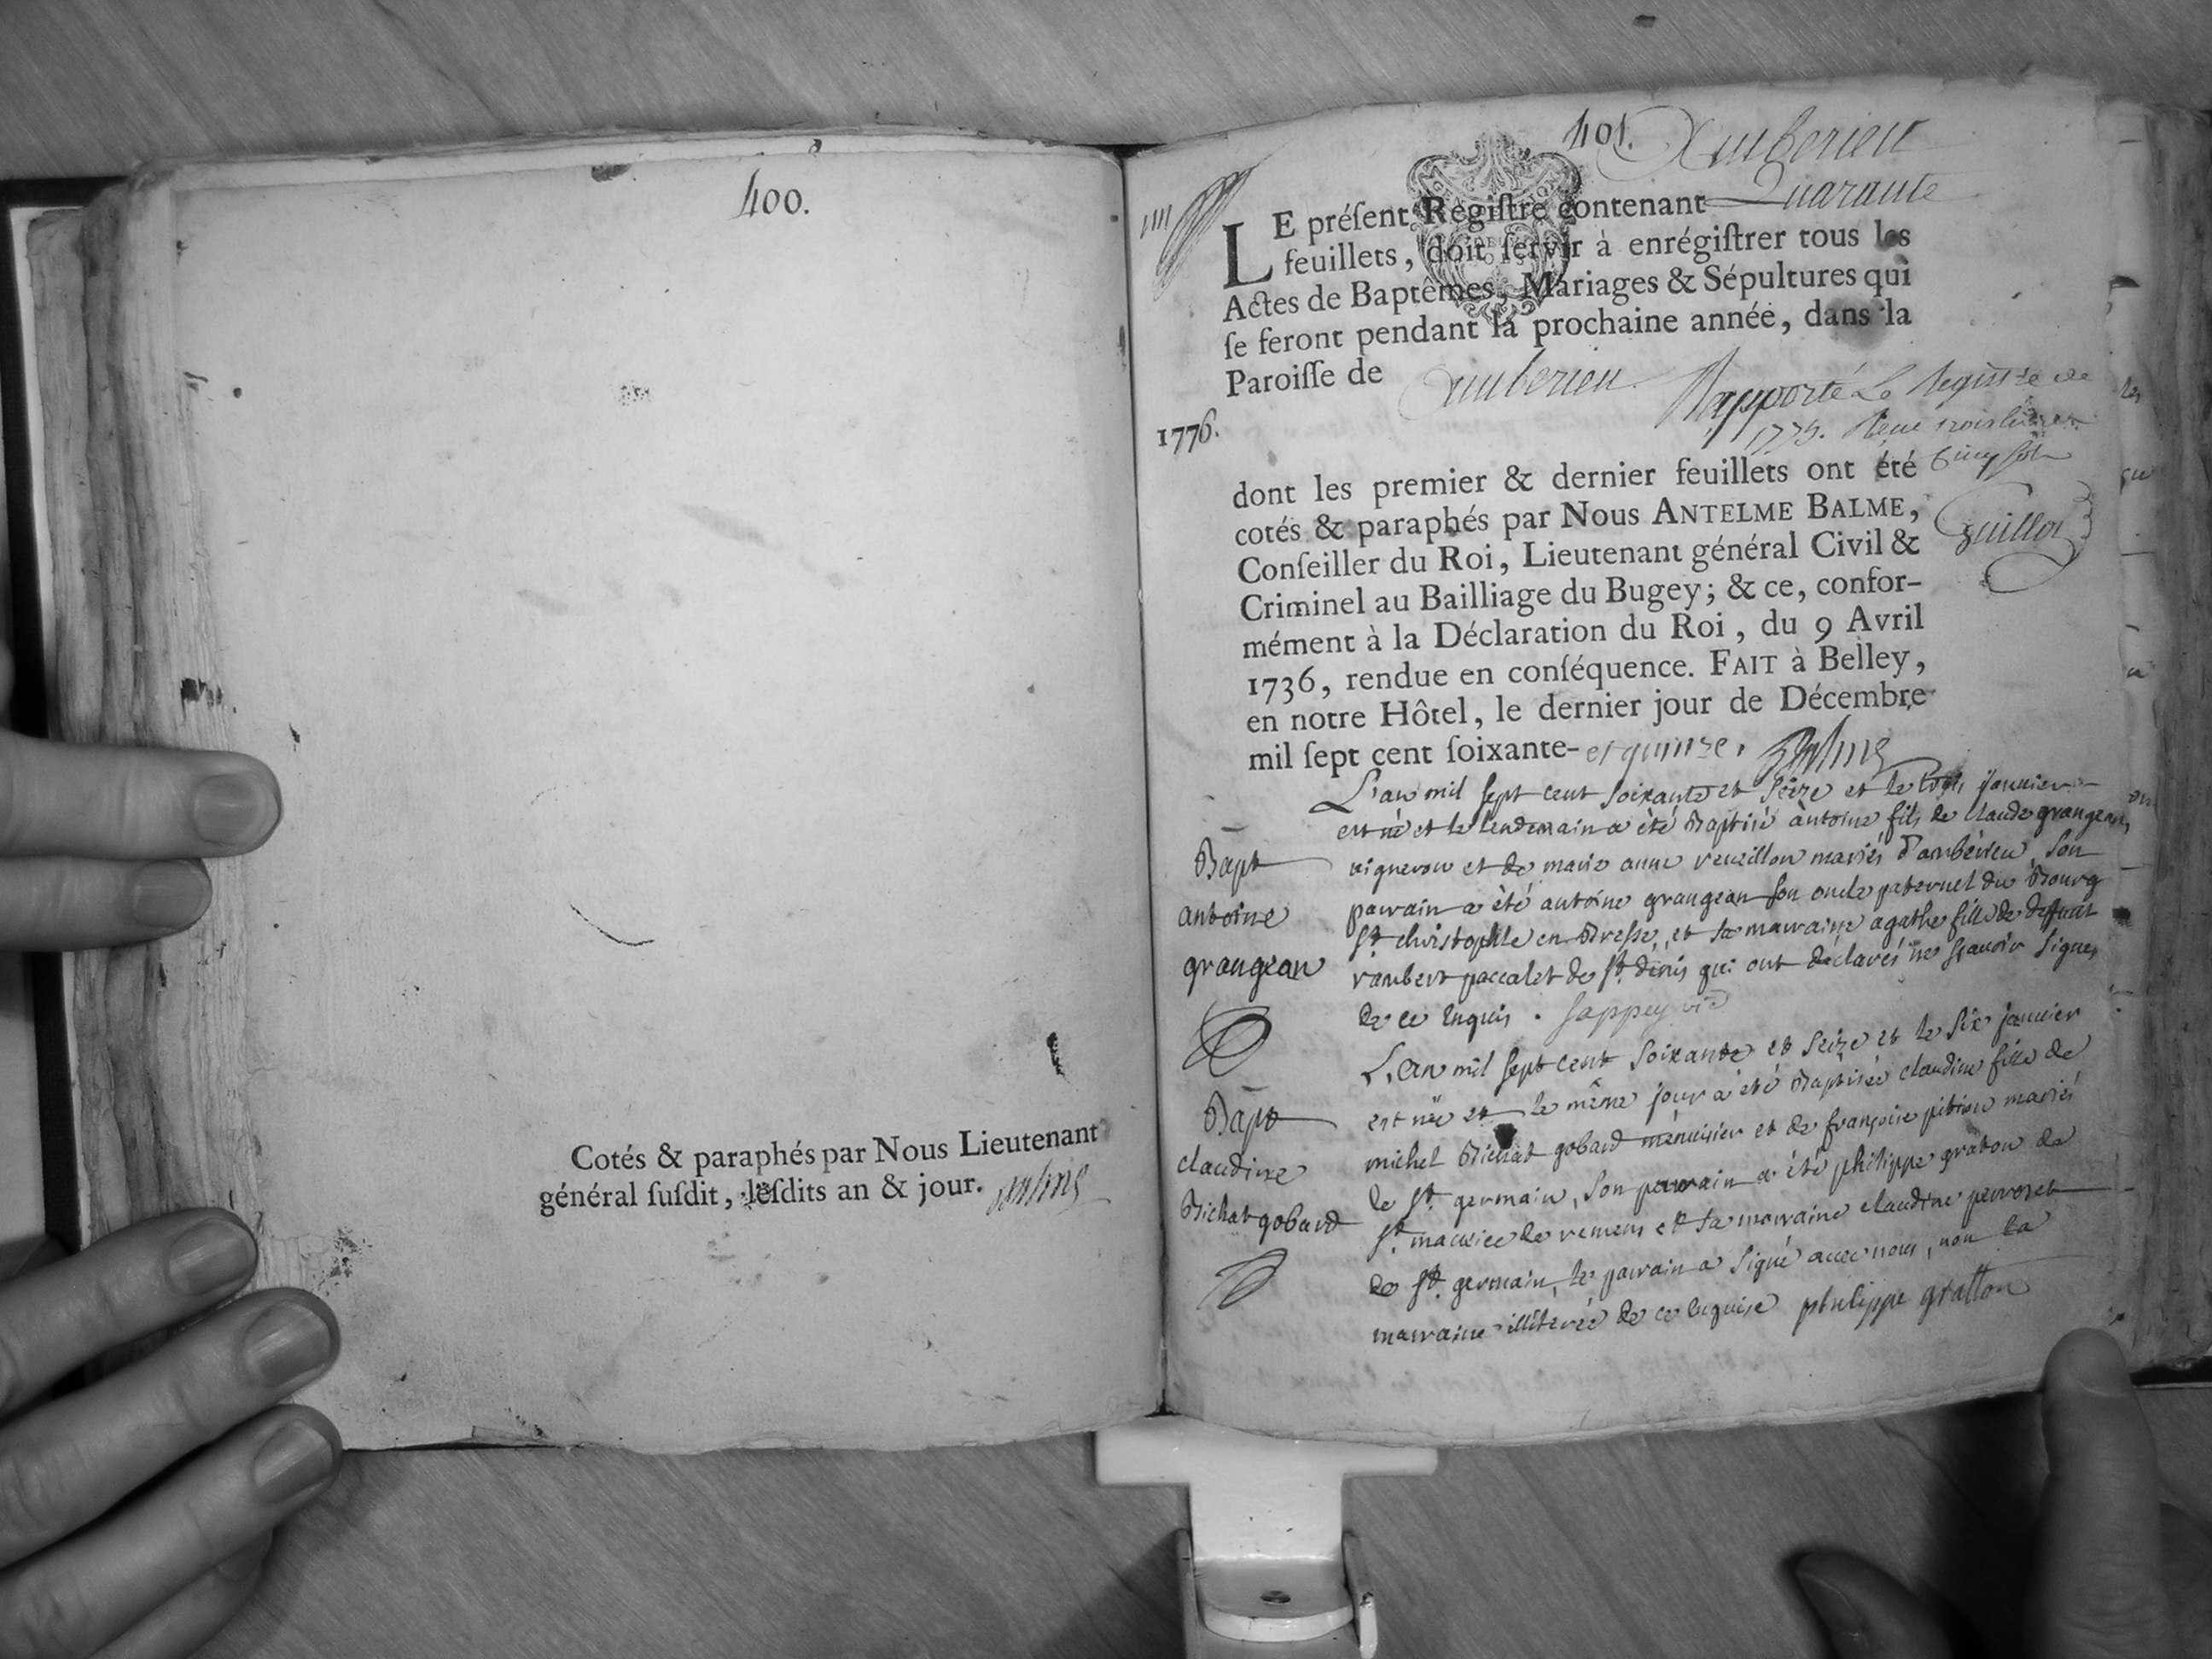 400.
Cotés & paraphés par Nous Lieutenant
général ſuſdit, leſdits an & jour. Balme
401. Amberieu
LE préſent Regiſtre contenant Quarante
feuillets, doit ſervir à enrégiſtrer tous les
Actes de Baptêmes, Mariages & Sépultures qui
ſe feront pendant la prochaine année, dans la
Paroiſſe de amberieu.
Rapporté Le Registre de
1775. Reçu trois livres
Cinq sols
Guillot
1776.
dont les premier & dernier feuillets ont été
cotés & paraphés par Nous ANTELME BALME,
Conſeiller du Roi, Lieutenant général Civil &
Criminel au Bailliage du Bugey; & ce, confor-
mément à la Déclaration du Roi, du 9 Avril
1736, rendue en conſéquence. FAIT à Belley,
en notre Hôtel, le dernier jour de Décembre
mil ſept cent ſoixante- et quinze. Balme
Bapt
antoine
grangean
L'an mil sept cent soixante et seize et le janvier
est né et le lendemain a été Baptisé antoine fils de claude grangean,
vigneron et de marie anne reveillon mariés d'ambérieu, son
parrain a été antoine grangean son oncle paternel du Bourg
st christophle en Bresse, et sa marraine agathe fille de deffunt
rambert paccalet de st denis qui ont déclarés ne sçavoir signer
de ce enquis. Sappey vic
Bapt
claudine
Bichat gobard
L'an mil sept cent soixante et seize et le six janvier
est née et le même jour a été Baptisée claudine fille de
michel Bichat gobard menuisier et de françoise pition mariés
de st. germain, son parrain a été philippe graton de
st. maurice de remens et sa marraine claudine perroset
de st. germain, le parrain a signé avec nous, non la
marraine illiterée de ce enquise philippe gratton